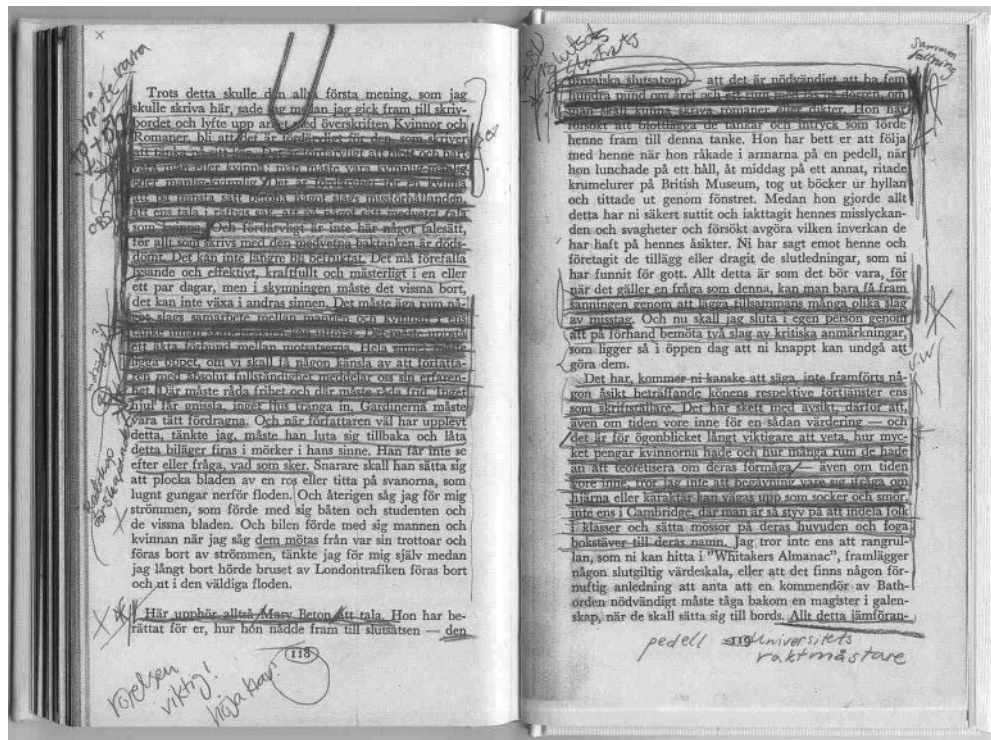 Trots detta skulle den allra första mening, som jag
skulle skriva här, sade jag medan jag gick fram till skriv-
bordet och lyfte upp arket med överskriften Kvinnor och
Romaner, bli att det är fördärvligt för den, som skriver
att tänka på sitt kön. Det är fördärvligt att blott och bart
vara man eller kvinna; man måste vara kvinnlig-manlig
eller manlig-kvinnlig. Det är fördärvligt för en kvinna
att på minsta sätt betona något slags missförhållanden,
att ens tala i rättvis sak, att på något sätt medvetet tala
som kvinna. Och fördärvligt är inte här något talesätt,
för allt som skrivs med den medvetna baktanken är döds-
dömt. Det kan inte längre bli befruktat. Det må förefalla
lysande och effektivt, kraftfullt och mästerligt i en eller
ett par dagar, men i skymningen måste det vissna bort,
det kan inte växa i andras sinnen. Det måste äga rum nå-
got slags samarbete mellan mannen och kvinnan i ens
ett äkta förbund mellan motsatserna. Hela sinnet måste
ligga öppet, om vi skall få någon känsla av att författa-
ren med absolut fullständighet meddelar oss sin erfaren-
het. Där måste råda frihet och där måste råda frid. Inget
hjul får gnissla, inget ljus tränga in. Gardinerna måste
vara tätt fördragna. Och när författaren väl har upplevt
detta, tänkte jag, måste han luta sig tillbaka och låta
detta biläger firas i mörker i hans sinne. Han får inte se
efter eller fråga, vad som sker. Snarare skall han sätta sig
att plocka bladen av en ros eller titta på svanorna, som
lugnt gungar nerför floden. Och återigen såg jag för mig
strömmen, som förde med sig båten och studenten och
de vissna bladen. Och bilen förde med sig mannen och
kvinnan när jag såg dem mötas från var sin trottoar och
föras bort av strömmen, tänkte jag för mig själv medan
jag långt bort hörde bruset av Londontrafiken föras bort
och ut i den väldiga floden.
Här upphör alltså Mary Beton att tala. Hon har be-
rättat för er, hur hon nådde fram till slutsatsen — den
118
rörelsen
viktig!
höja krav!
OBS
samman
fattning
prosaiska slutsatsen — att det är nödvändigt att ha fem
hundra pund om året och ett rum med lås på dörren, om
man skall kunna skriva romaner eller dikter. Hon har
försökt att blottlägga de tankar och intryck som förde
henne fram till denna tanke. Hon har bett er att följa
med henne när hon råkade i armarna på en pedell, när
hon lunchade på ett håll, åt middag på ett annat, ritade
krumelurer på British Museum, tog ut böcker ur hyllan
och tittade ut genom fönstret. Medan hon gjorde allt
detta har ni säkert suttit och iakttagit hennes misslyckan-
den och svagheter och försökt avgöra vilken inverkan de
har haft på hennes åsikter. Ni har sagt emot henne och
företagit de tillägg eller dragit de slutledningar, som ni
har funnit för gott. Allt detta är som det bör vara, för
när det gäller en fråga som denna, kan man bara få fram
sanningen genom att lägga tillsammans många olika slag
av misstag. Och nu skall jag sluta i egen person genom
att på förhand bemöta två slag av kritiska anmärkningar,
som ligger så i öppen dag att ni knappt kan undgå att
göra dem.
Det har, kommer ni kanske att säga, inte framförts nå-
gon åsikt beträffande könens respektive förtjänster ens
som skriftställare. Det har skett med avsikt, därför att,
även om tiden vore inne för en sådan värdering — och
det är för ögonblicket långt viktigare att veta, hur myc-
ket pengar kvinnorna hade och hur många rum de hade
än att teoretisera om deras förmåga — även om tiden
vore inne, tror jag inte att begåvning vare sig ifråga om
hjärna eller karaktär kan vägas upp som socker och smör,
inte ens i Cambridge, där man är så styv på att indela folk
i klasser och sätta mössor på deras huvuden och foga
bokstäver till deras namn. Jag tror inte ens att rangrul-
lan, som ni kan hitta i "Whitakers Almanac", framlägger
någon slutgiltig värdeskala, eller att det finns någon för-
nuftig anledning att anta att en kommendör av Bath-
orden nödvändigt måste tåga bakom en magister i galen-
skap, när de skall sätta sig till bords. Allt detta jämföran-
119
pedell = Universitets
vaktmästare